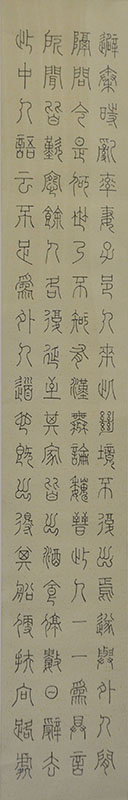 避秦時亂率妻子邑人來此絕境不復出焉遂與外人間
隔問今是何世乃不知有漢無論魏晉此人一一為具言
所聞皆歎惋餘人各復延至其家皆出酒食停數日辭去
此中人語云不足為外人道也既出得其船便扶向路處